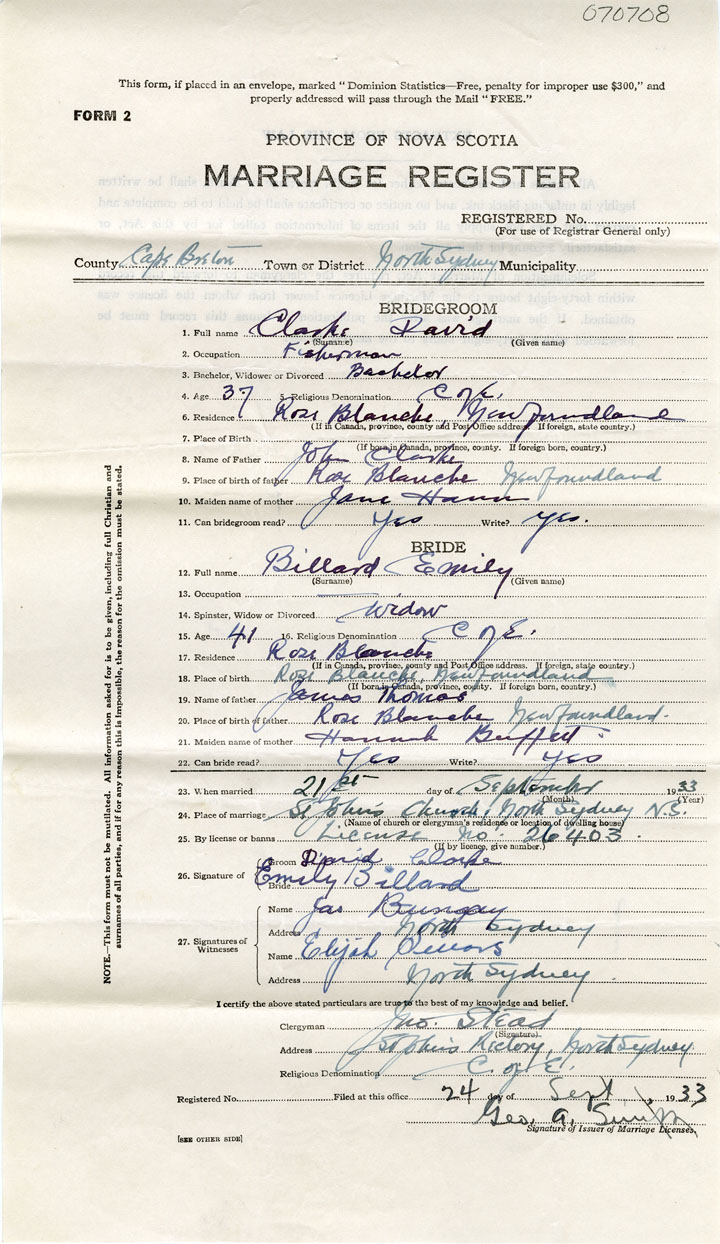 070708
This form, if placed in an envelope, marked "Dominion Statistics—Free, penalty for improper use $300," and
properly addressed will pass through the Mail "FREE."
FORM 2
PROVINCE OF NOVA SCOTIA
MARRIAGE REGISTER
REGISTERED No.
(For use of Registrar General only)
County Cape Breton Town or District North Sydney Municipality
BRIDEGROOM
1. Full name Clarke David
(Surname) (Given name)
2. Occupation Fisherman
3. Bachelor, Widower or Divorced Bachelor
4. Age 37 5. Religious Denomination C of E.
6. Residence Rose Blanche, Newfoundland
(If in Canada, province, county and Post Office address. If foreign, state country.)
7. Place of Birth
(If born in Canada, province, county. If foreign born, country.)
8. Name of Father John Clarke
9. Place of birth of father Rose Blanche Newfoundland
10. Maiden name of mother Jane Hann
11. Can bridegroom read? Yes Write? Yes.
BRIDE
12. Full name Billard Emily
(Surname) (Given name)
13. Occupation
14. Spinster, Widow or Divorced Widow
15. Age 41 16. Religious Denomination C of E.
17. Residence Rose Blanche
(If in Canada, province, county and Post Office address. If foreign, state country.)
18. Place of birth Rose Blanche, Newfoundland
(If born in Canada, province, county. If foreign born, country.)
19. Name of father James Thomas
20. Place of birth of father Rose Blanche Newfoundland.
21. Maiden name of mother Hannah Buffett
22. Can bride read? Yes Write? Yes
23. When married 21st day of September 1933
(Month) (Year)
24. Place of marriage St Johns Church, North Sydney N.S.
(Name of church or clergyman's residence or location of dwelling house)
25. By license or banns License No. 26403.
(If by licence, give number.)
26. Signature of
Groom David Clarke
Bride Emily Billard
27. Signatures of Witnesses
Name Jas Bungay
Address North Sydney
Name Elijah
Address North Sydney
I certify the above stated particulars are true to the best of my knowledge and belief.
Clergyman Jno. Stead
(Signature)
Address St Johns Rectory, North Sydney
Religious Denomination C. of E.
Registered No. Filed at this office 24 day of Sept 1933
Geo. A.
Signature of Issuer of Marriage Licenses.
[SEE OTHER SIDE]
NOTE.—This form must not be mutilated. All information asked for is to be given, including full Christian and
surnames of all parties, and if for any reason this is impossible, the reason for the omission must be stated.